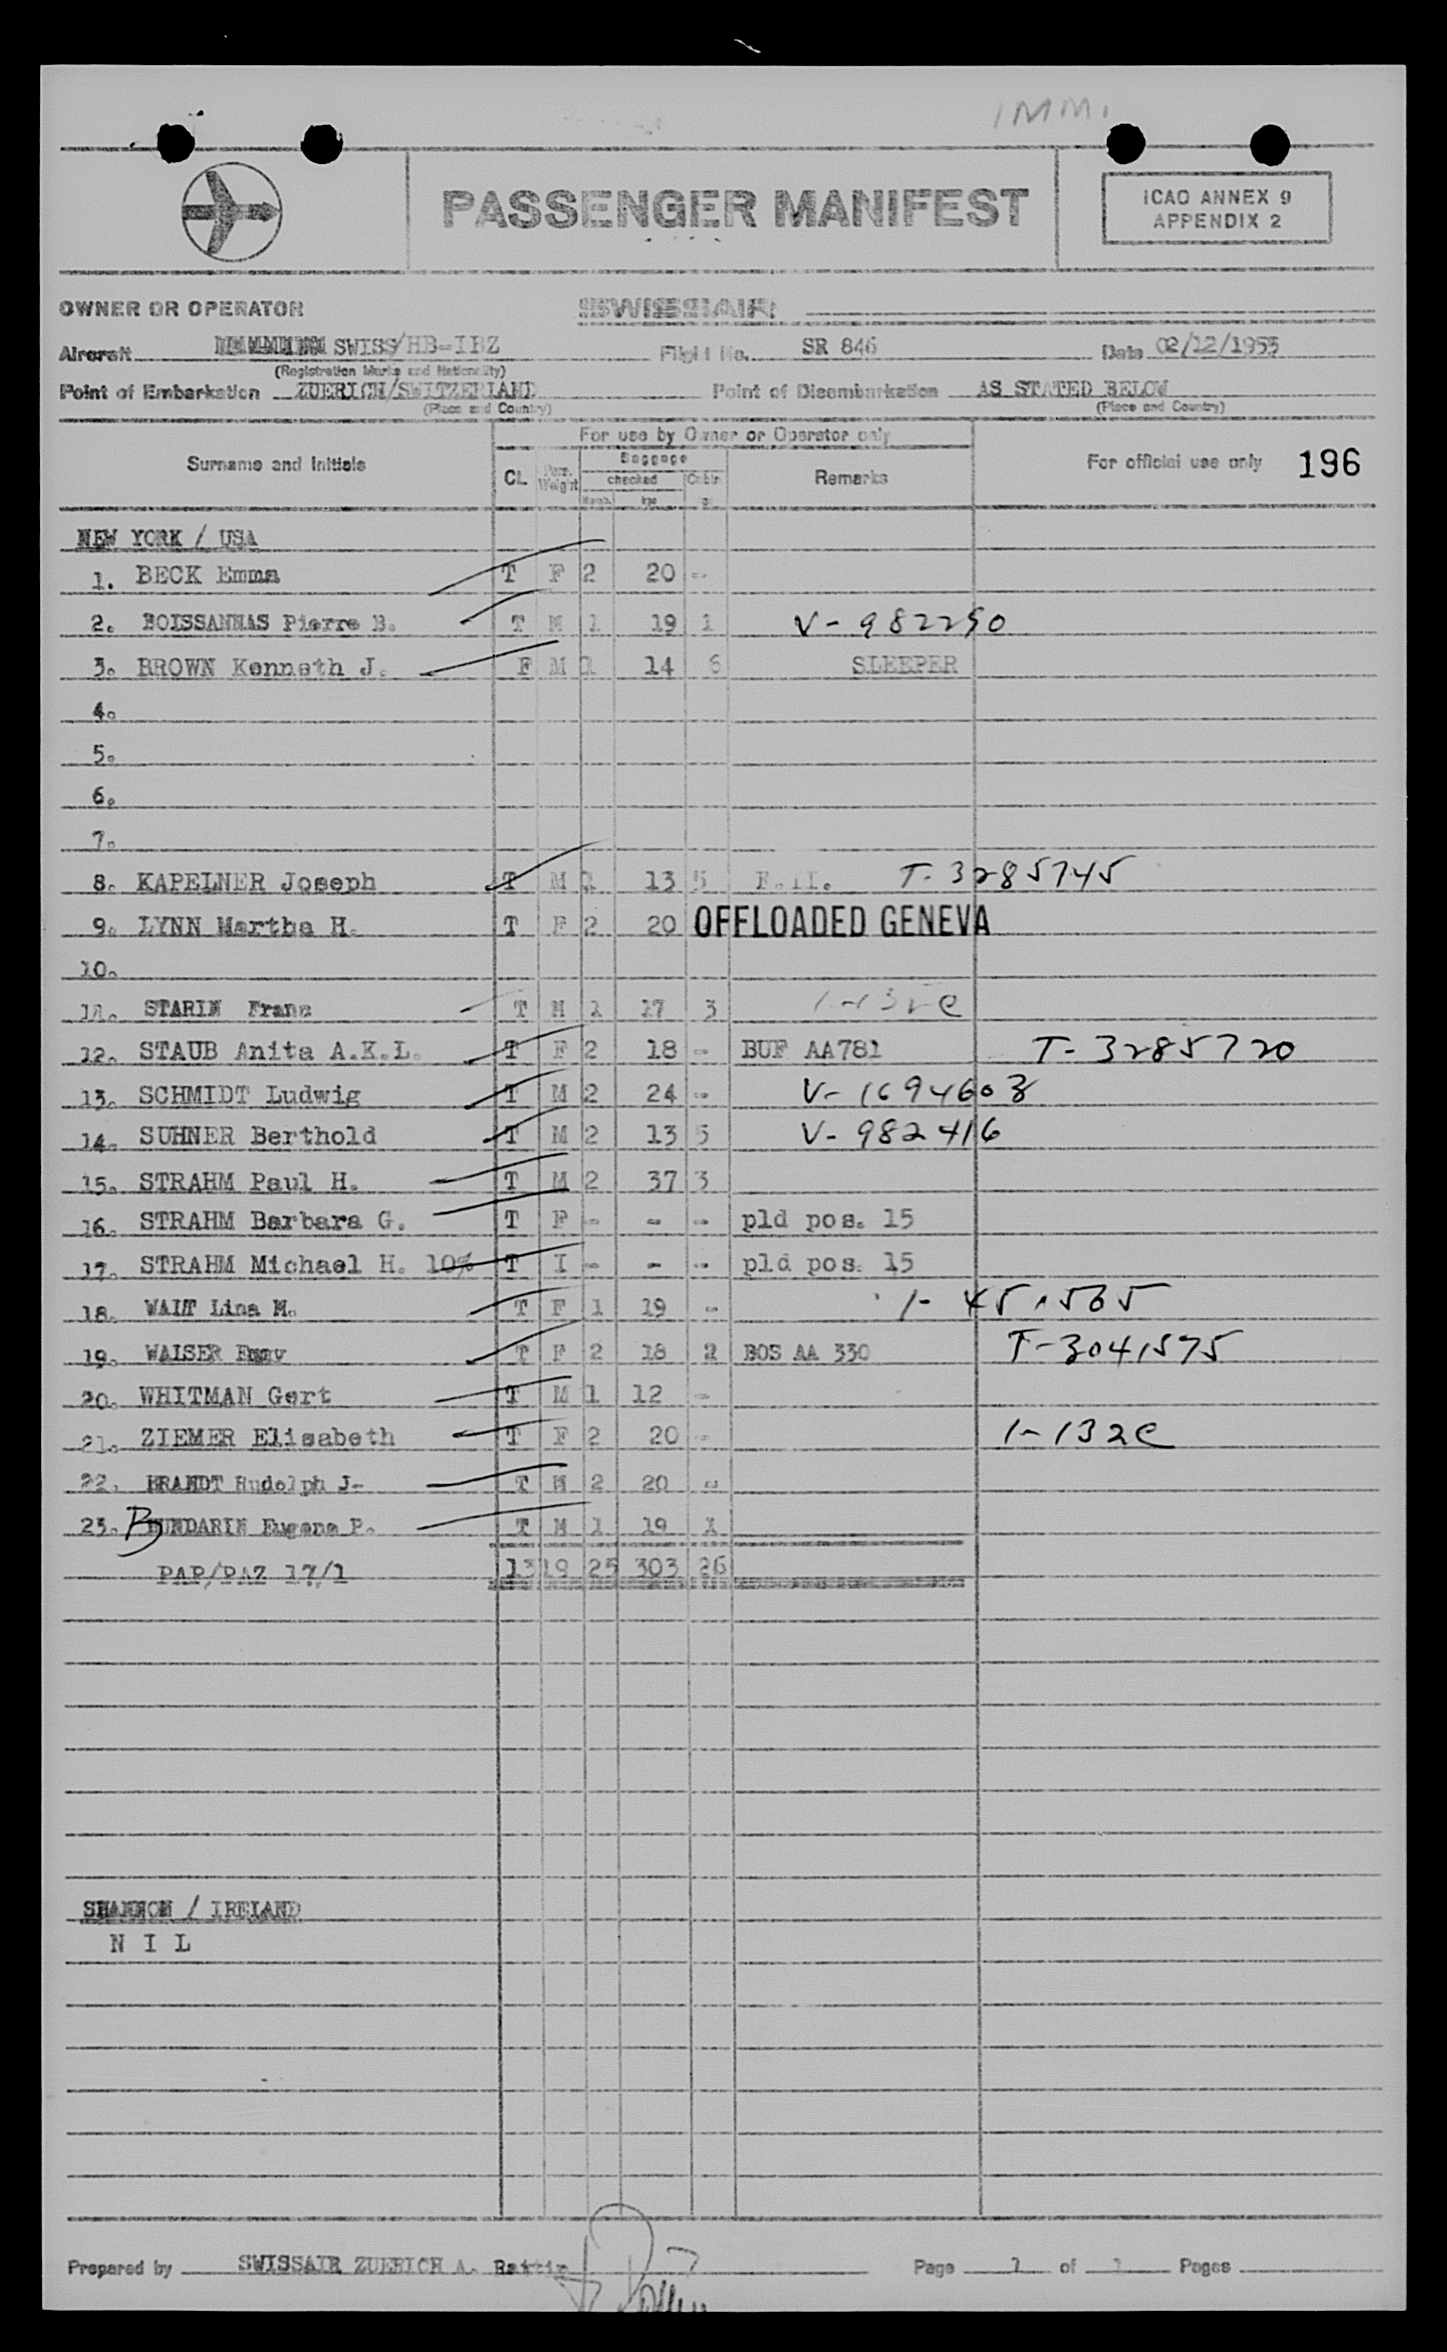 IMMI
PASSENGER MANIFEST
ICAO ANNEX 9
APPENDIX 2
OWNER OR OPERATOR SWISSAIR
Aircraft SWISS/HB-IBZ Flight No. SR 846 Date 02/12/1955
(Registration Marks and Nationality)
Point of Embarkation ZUERICH/SWITZERLAND Point of Disembarkation AS STATED BELOW
(Place and Country) (Place and Country)
For use by Owner or Operator only
Surname and Initials CL. Pass. Weight Baggage checked Numb. kgs Cabin Remarks For official use only 196
NEW YORK / USA
1. BECK Emma T F 2 20 --
2. BOISSANNAS Pierre B. T M 1 19 1 V-982250
3. BROWN Kenneth J. F M 1 14 6 SLEEPER
4.
5.
6.
7.
8. KAPELNER Joseph T M 1 13 5 T-3285745
9. LYNN Martha H. T F 2 20 OFFLOADED GENEVA
10.
11. STARIN Franz T M 1 17 3 1-132e
12. STAUB Anita A.K.L. T F 2 18 -- BUF AA781 T-3285720
13. SCHMIDT Ludwig T M 2 24 -- V-1694603
14. SUHNER Berthold T M 2 13 5 V-982416
15. STRAHM Paul H. T M 2 37 3
16. STRAHM Barbara G. T F -- -- -- pld pos. 15
17. STRAHM Michael H. 10% T I -- -- -- pld pos. 15
18. Lina M. T F 1 19 --
19. WALSER Emmy T F 2 18 2 BOS AA 330 T-3041575
20. WHITMAN Gert T M 1 12 --
21. ZIEMER Elisabeth T F 2 20 -- 1-132e
22. BRANDT Rudolph J- T M 2 20 --
23. BUNDARIN Eugene P. T M 1 19 1
PAP/PAZ 17/1 1319 25 303 26
SHANNON / IRELAND
N I L
Prepared by SWISSAIR ZUERICH A. Page 1 of 1 Pages